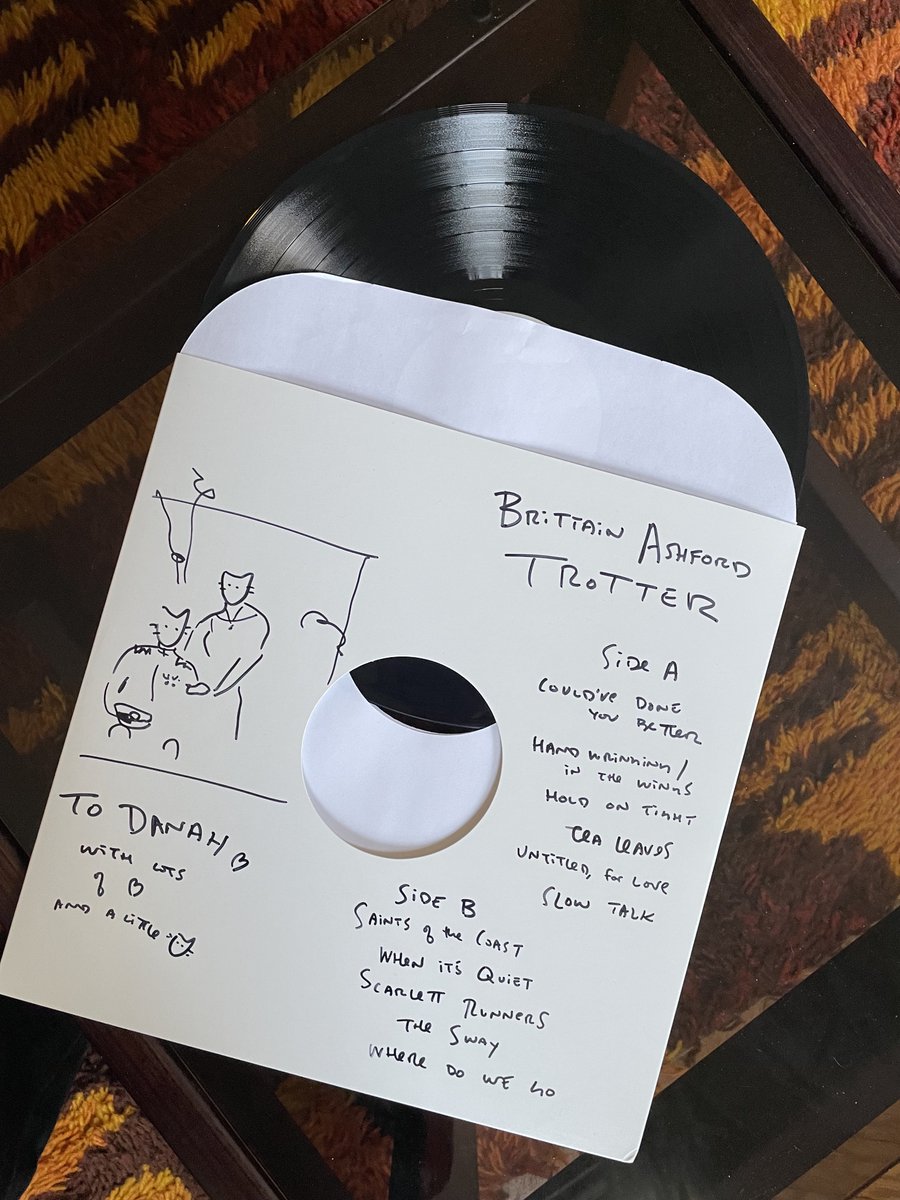 BRITTAIN ASHFORD
TROTTER
SIDE A
COULD'VE DONE
YOU BETTER
HAND WRINGING /
IN THE WINGS
HOLD ON TIGHT
TEA LEAVES
UNTITLED, for LOVE
SLOW TALK
SIDE B
SAINTS of the COAST
WHEN IT'S QUIET
SCARLETT RUNNERS
THE SWAY
WHERE DO WE GO
TO DANAH
WITH LOTS
of
AND A LITTLE